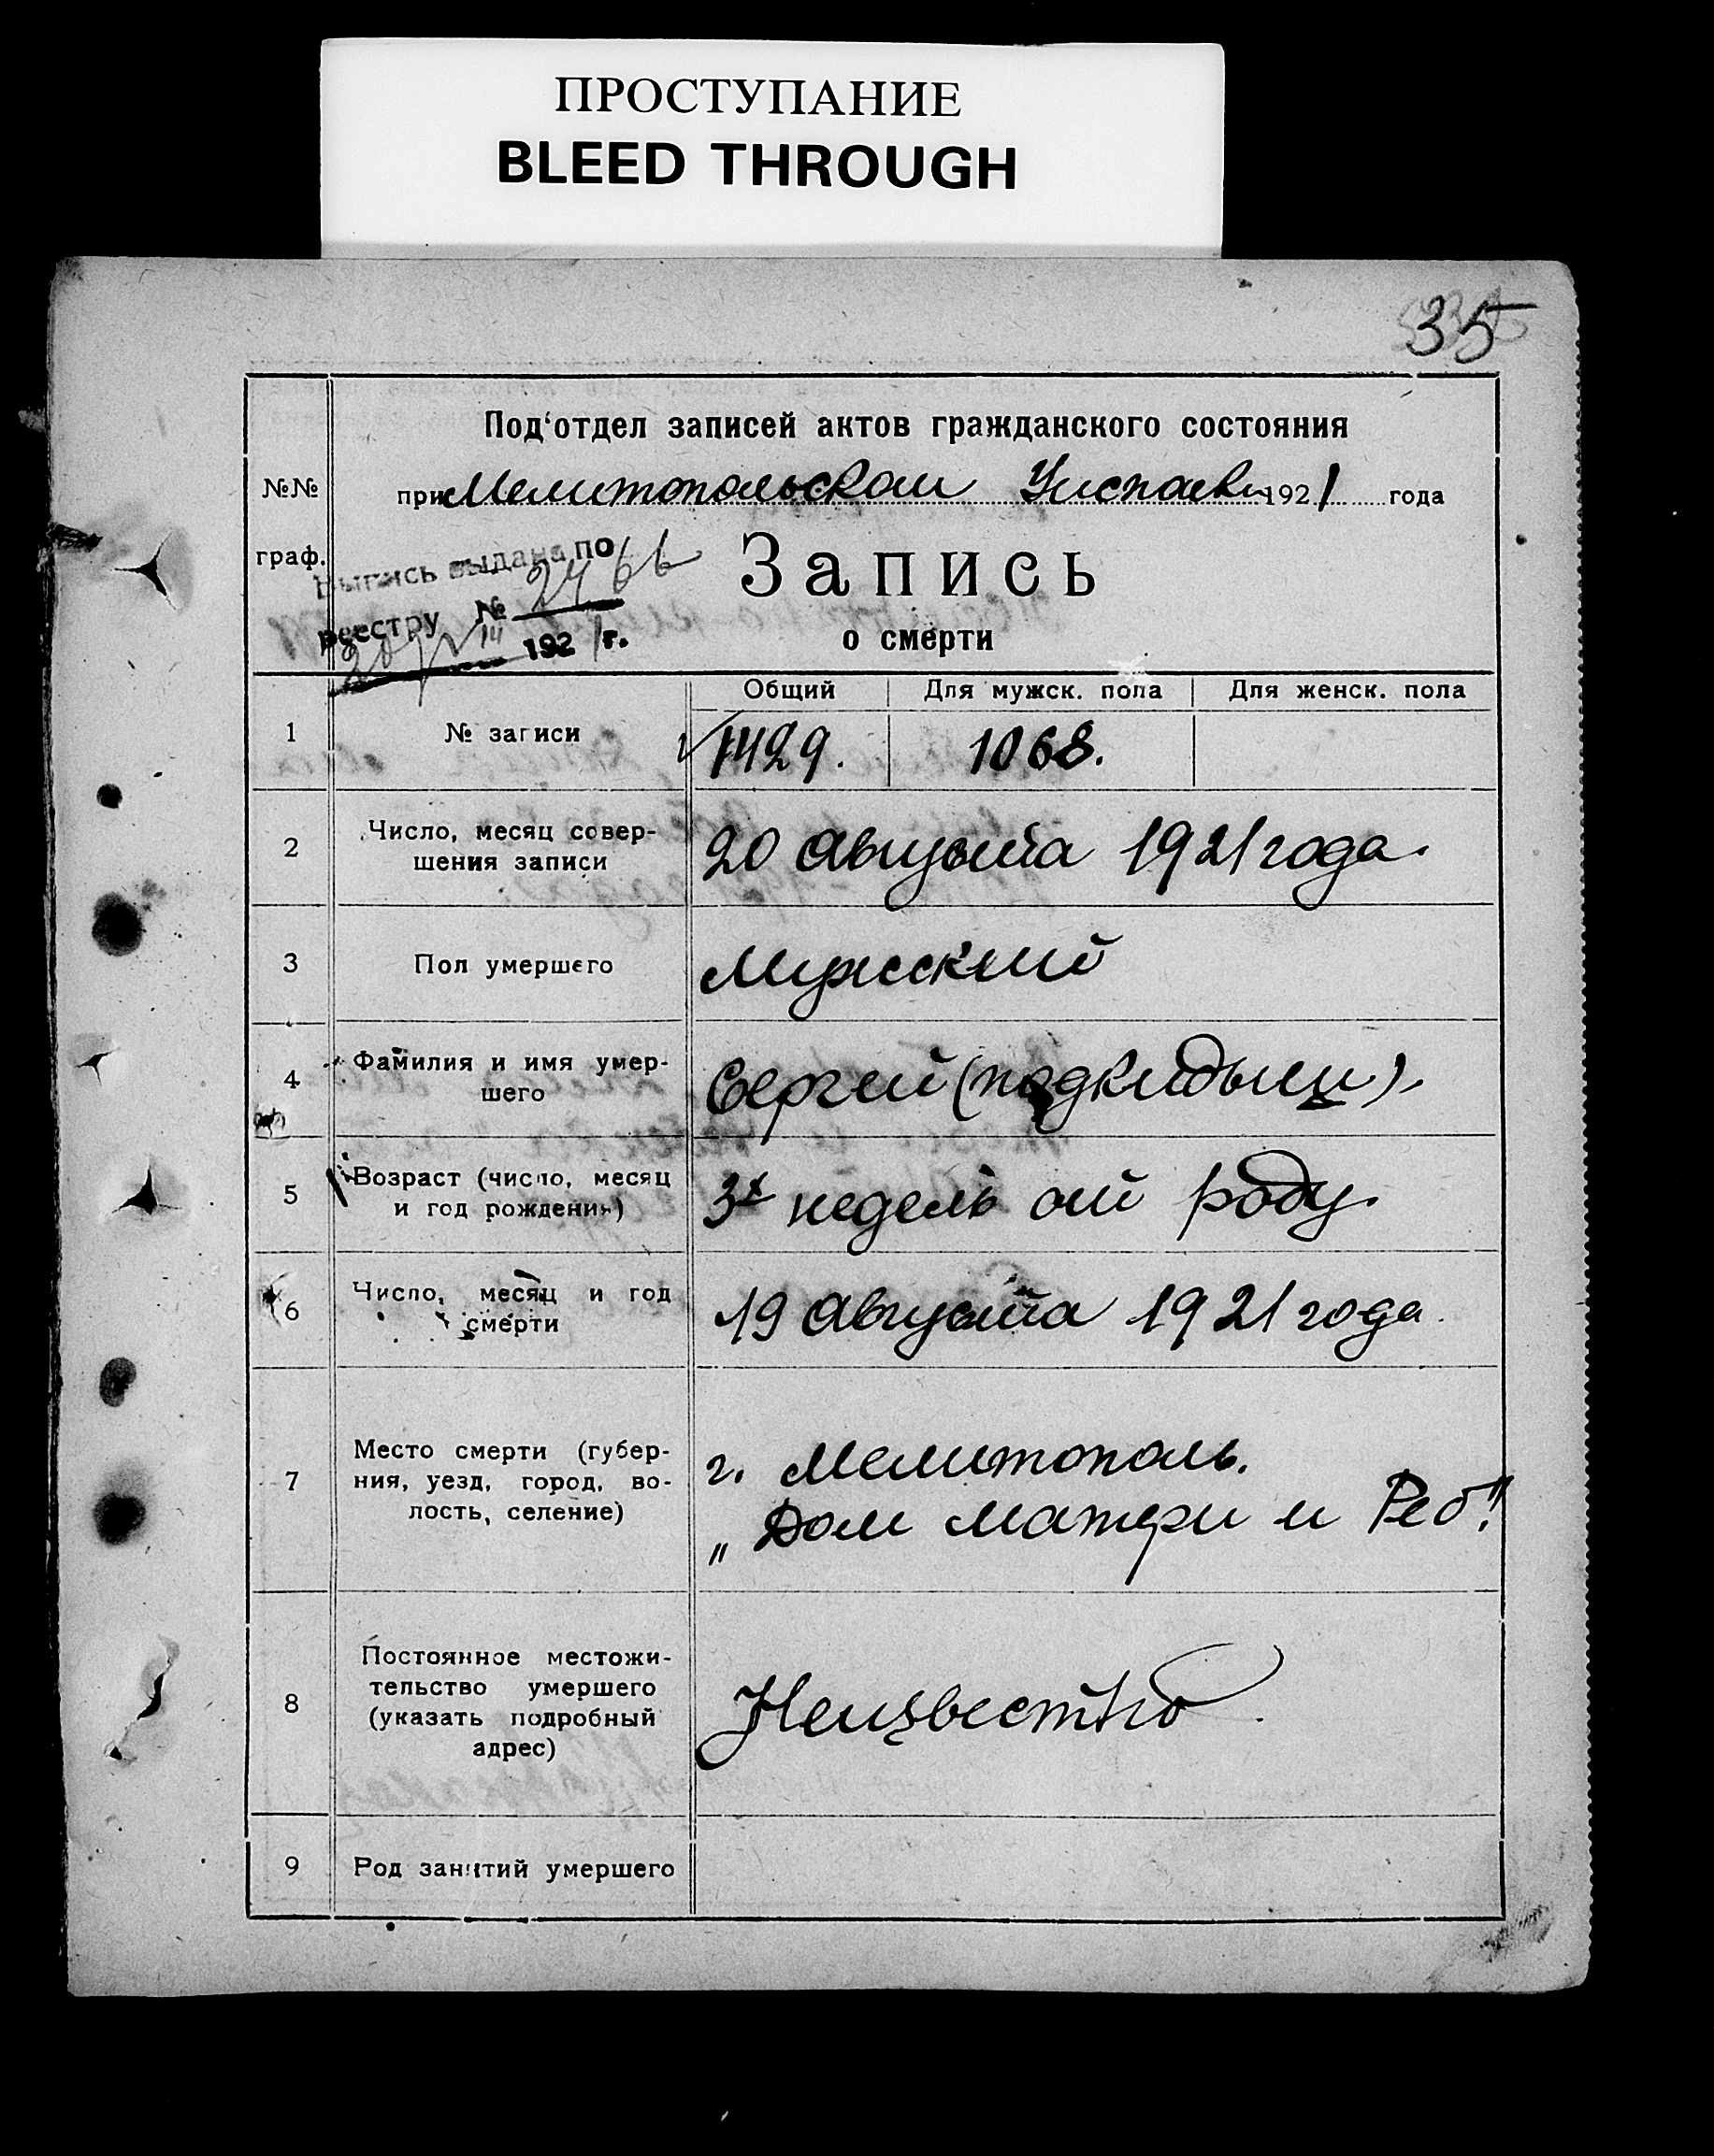 ПРОСТУПАНИЕ
BLEED THROUGH
35
Под'отдел записей актов гражданского состояния
№№ при Мелитопольском 1921 года
граф.
Выпись выдана по
реестру №
192 г.
Запись
о смерти
Общий Для мужск. пола Для женск. пола
1 № записи 1429. 1068.
2 Число, месяц совер-
шения записи 20 Августа 1921 года.
3 Пол умершего Мужский
4 Фамилия и имя умер-
шего Сергей (подкидыш).
5 Возраст (число, месяц
и год рождения) 3х недель от роду.
6 Число, месяц и год
смерти 19 Августа 1921 года.
7 Место смерти (губер-
ния, уезд, город, во-
лость, селение)
г. Мелитополь.
„Дом матери и Реб."
8 Постоянное местожи-
тельство умершего
(указать подробный
адрес)
Неизвестно
9 Род занятий умершего